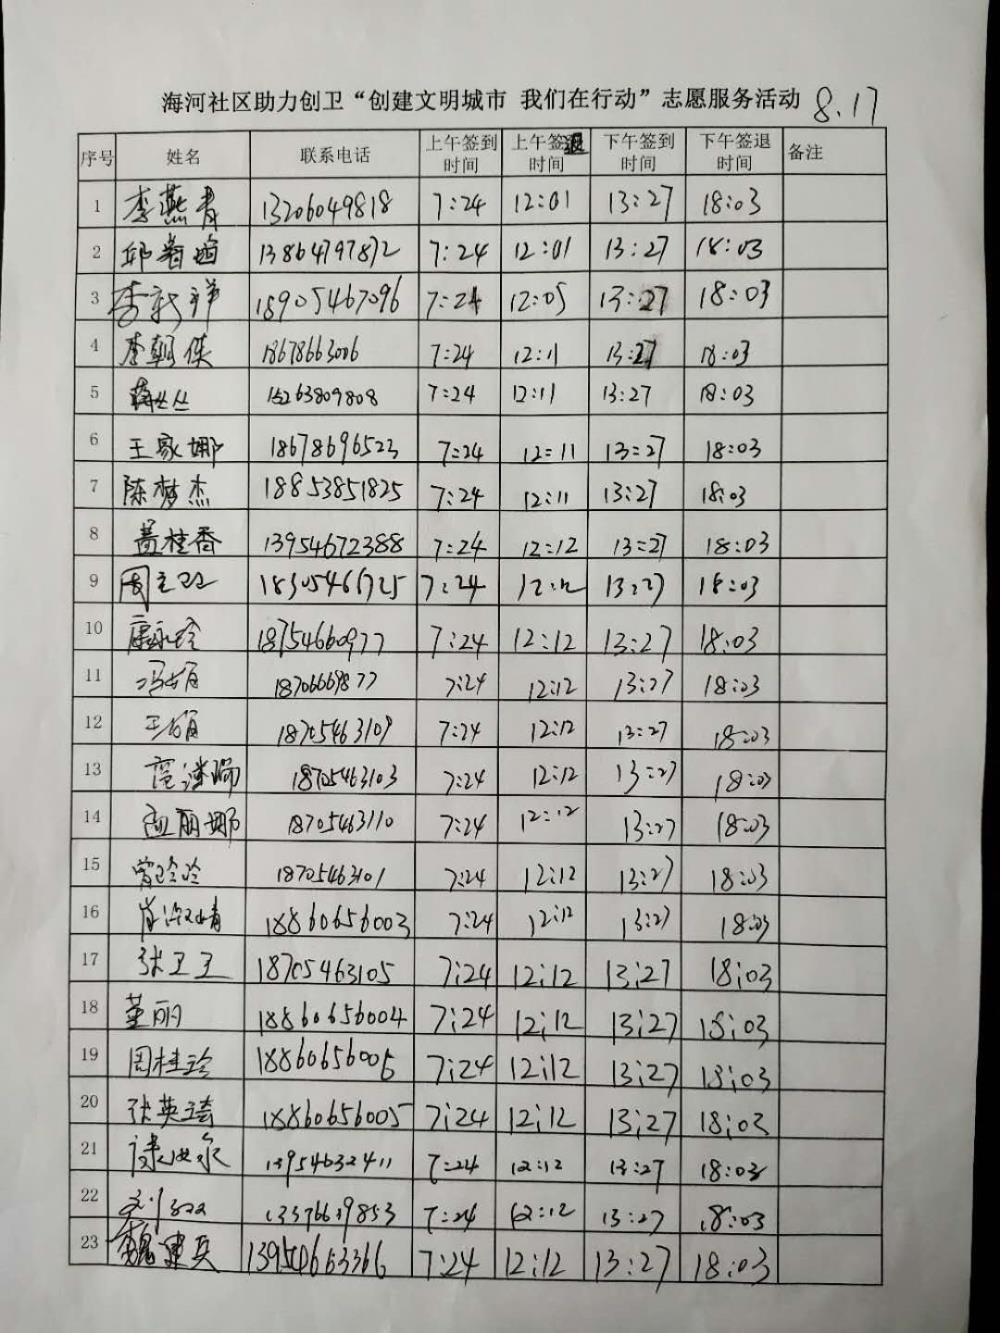 海河社区助力创卫“创建文明城市 我们在行动”志愿服务活动 8.17
序号 姓名 联系电话 上午签到时间 上午签退时间 下午签到时间 下午签退时间 备注
1 李燕青 13206049818 7:24 12:01 13:27 18:03
2 13864797872 7:24 12:01 13:27 18:03
3 李新祥 18905467096 7:24 12:05 13:27 18:03
4 李朝侠 18678663006 7:24 12:11 13:27 18:03
5 蒋丛丛 15263809808 7:24 12:11 13:27 18:03
6 王家娜 18678696523 7:24 12:11 13:27 18:03
7 陈梦杰 18853851825 7:24 12:11 13:27 18:03
8 黄桂香 13954672388 7:24 12:12 13:27 18:03
9 7:24 12:12 13:27 18:03
10 康永玲 18754660977 7:24 12:12 13:27 18:03
11 18706669877 7:24 12:12 13:27 18:03
12 18705463109 7:24 12:12 13:27 18:03
13 18705463103 7:24 12:12 13:27 18:03
14 孟丽娜 18705463110 7:24 12:12 13:27 18:03
15 曾玲玲 18705463101 7:24 12:12 13:27 18:03
16 18860656003 7:24 12:12 13:27 18:03
17 张卫王 18705463105 7:24 12:12 13:27 18:03
18 董丽 18860656004 7:24 12:12 13:27 18:03
19 周桂玲 18860656006 7:24 12:12 13:27 18:03
20 张英琦 18860656005 7:24 12:12 13:27 18:03
21 13954632411 7:24 12:12 13:27 18:03
22 13376639853 7:24 12:12 13:27 18:03
23 魏建兵 13954663366 7:24 12:12 13:27 18:03